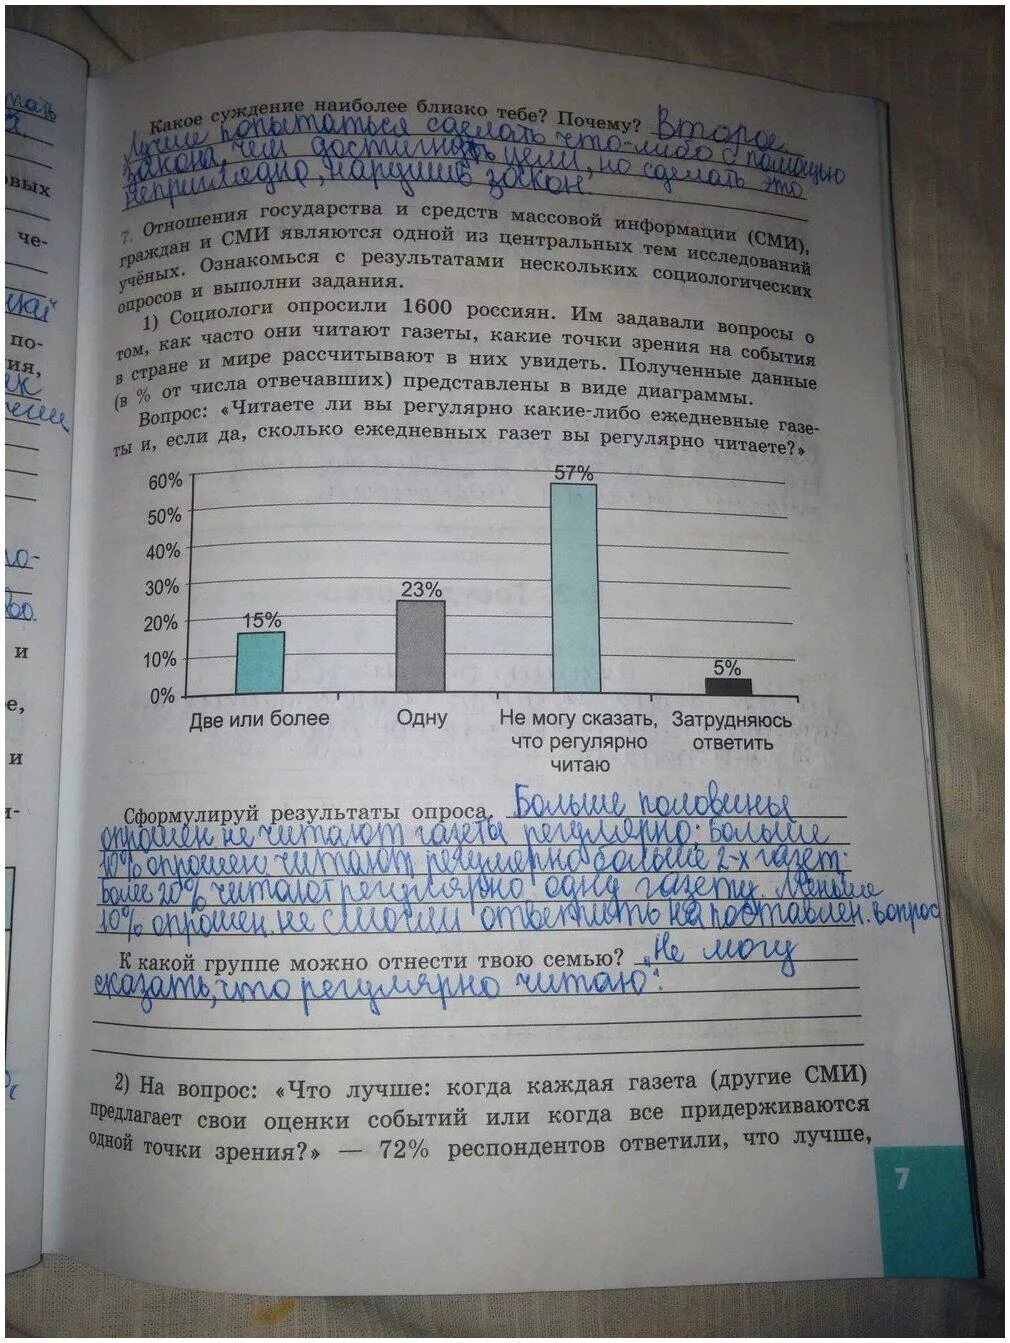 Какое суждение наиболее близко тебе? Почему? Второе.
Лучше попытаться сделать что-либо с помощью
закона, чем достигнуть цели, но сделать это
нарушив закон.
7. Отношения государства и средств массовой информации (СМИ),
граждан и СМИ являются одной из центральных тем исследований
учёных. Ознакомься с результатами нескольких социологических
опросов и выполни задания.
1) Социологи опросили 1600 россиян. Им задавали вопросы о
том, как часто они читают газеты, какие точки зрения на события
в стране и мире рассчитывают в них увидеть. Полученные данные
(в % от числа отвечавших) представлены в виде диаграммы.
Вопрос: «Читаете ли вы регулярно какие-либо ежедневные газе-
ты и, если да, сколько ежедневных газет вы регулярно читаете?»
60%
50%
40%
30%
20%
10%
0%
15%
23%
57%
5%
Две или более
Одну
Не могу сказать,
что регулярно
читаю
Затрудняюсь
ответить
Сформулируй результаты опроса. Больше половины
опрошен. не читают газеты регулярно; больше
10% опрошен. читают регулярно больше 2-х газет;
более 20% читают регулярно одну газету. Меньше
10% опрошен. не смогли ответить на поставлен. вопрос
К какой группе можно отнести твою семью? „Не могу
сказать, что регулярно читаю".
2) На вопрос: «Что лучше: когда каждая газета (другие СМИ)
предлагает свои оценки событий или когда все придерживаются
одной точки зрения?» — 72% респондентов ответили, что лучше,
7
овых
че-
по-
ия,
и
е,
и